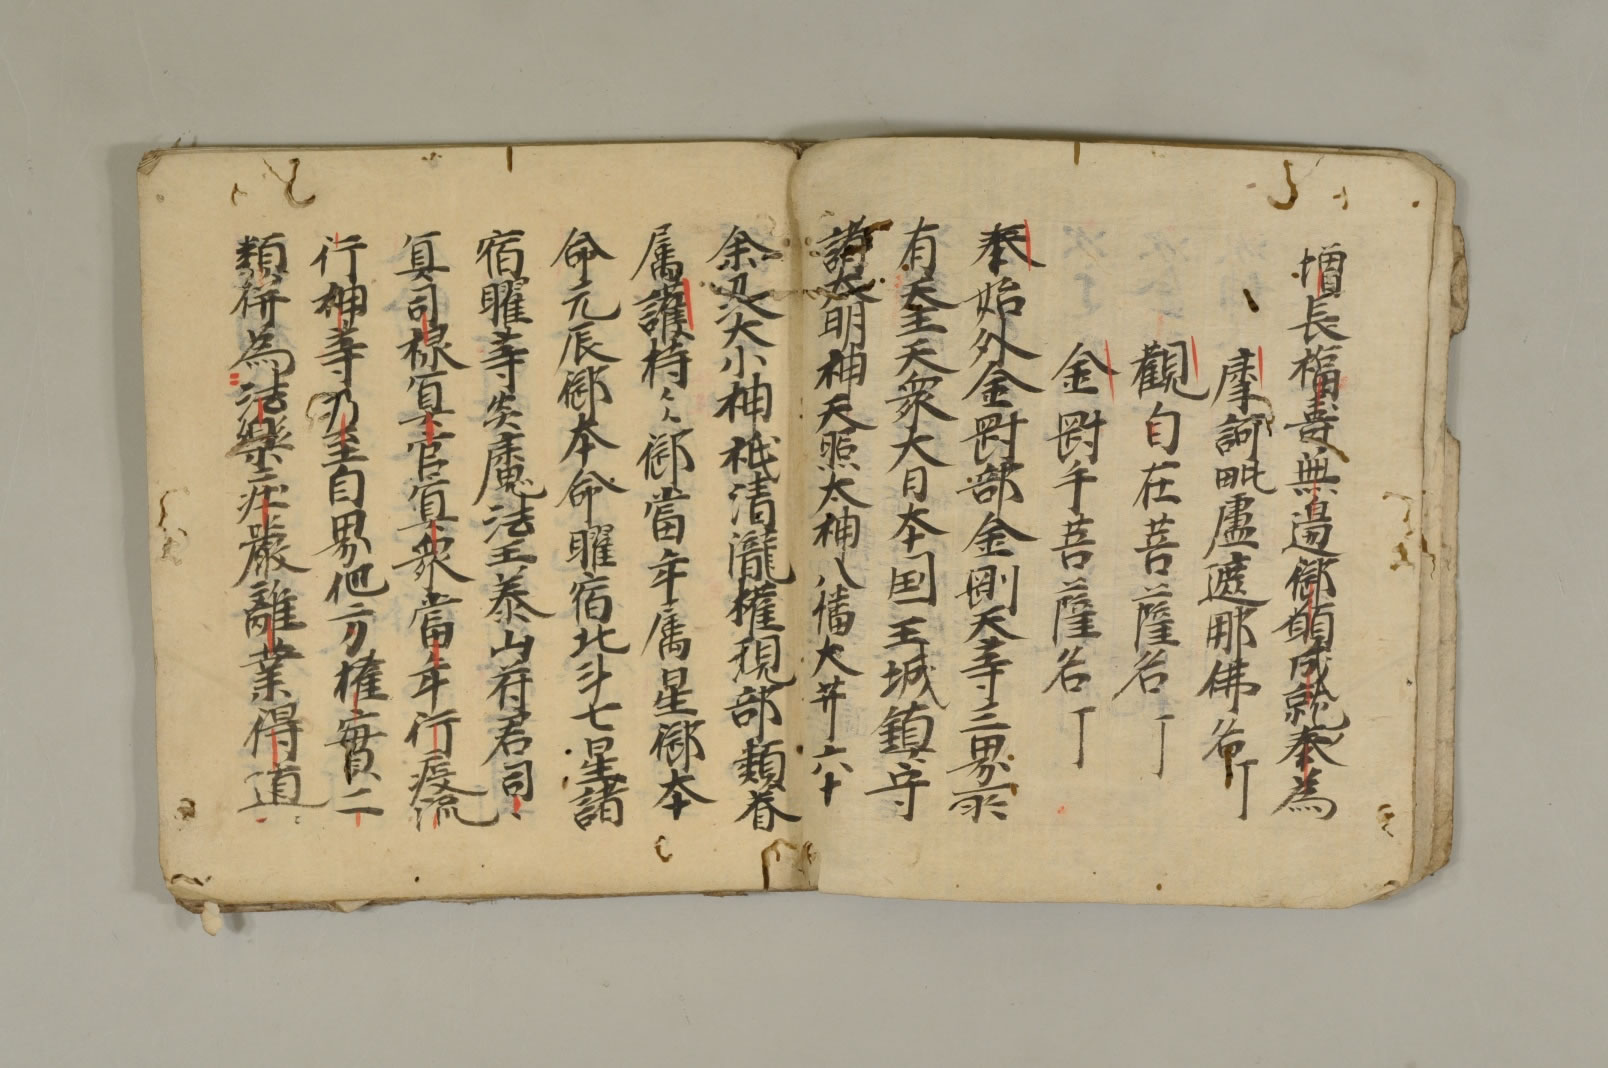 増長福壽無邊御願成就奉為
摩訶毗盧遮那佛名丁
觀自在菩薩名丁
金剛手菩薩名丁
奉始外金剛部金剛天等三界所
有天王天衆大日本国王城鎮守
諸大明神天照太神八幡大井六十
余及大小神祇清瀧權現部類眷
属護持〻御當年属星御本
命元辰御本命曜宿北斗七星諸
宿曜等炎魔法王泰山符君司
冥司禄冥官冥衆當年行疫流
行神等乃至自界他方權實二
類併為法樂庄嚴離業得道